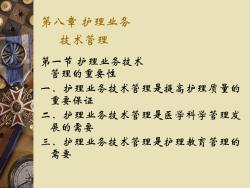 第八章 护理业务
技术管理
第一节 护理业务技术
管理的重要性
一、护理业务技术管理是提高护理质量的
重要保证
二、护理业务技术管理是医学科学管理发
展的需要
三、护理业务技术管理是护理教育管理的
需要